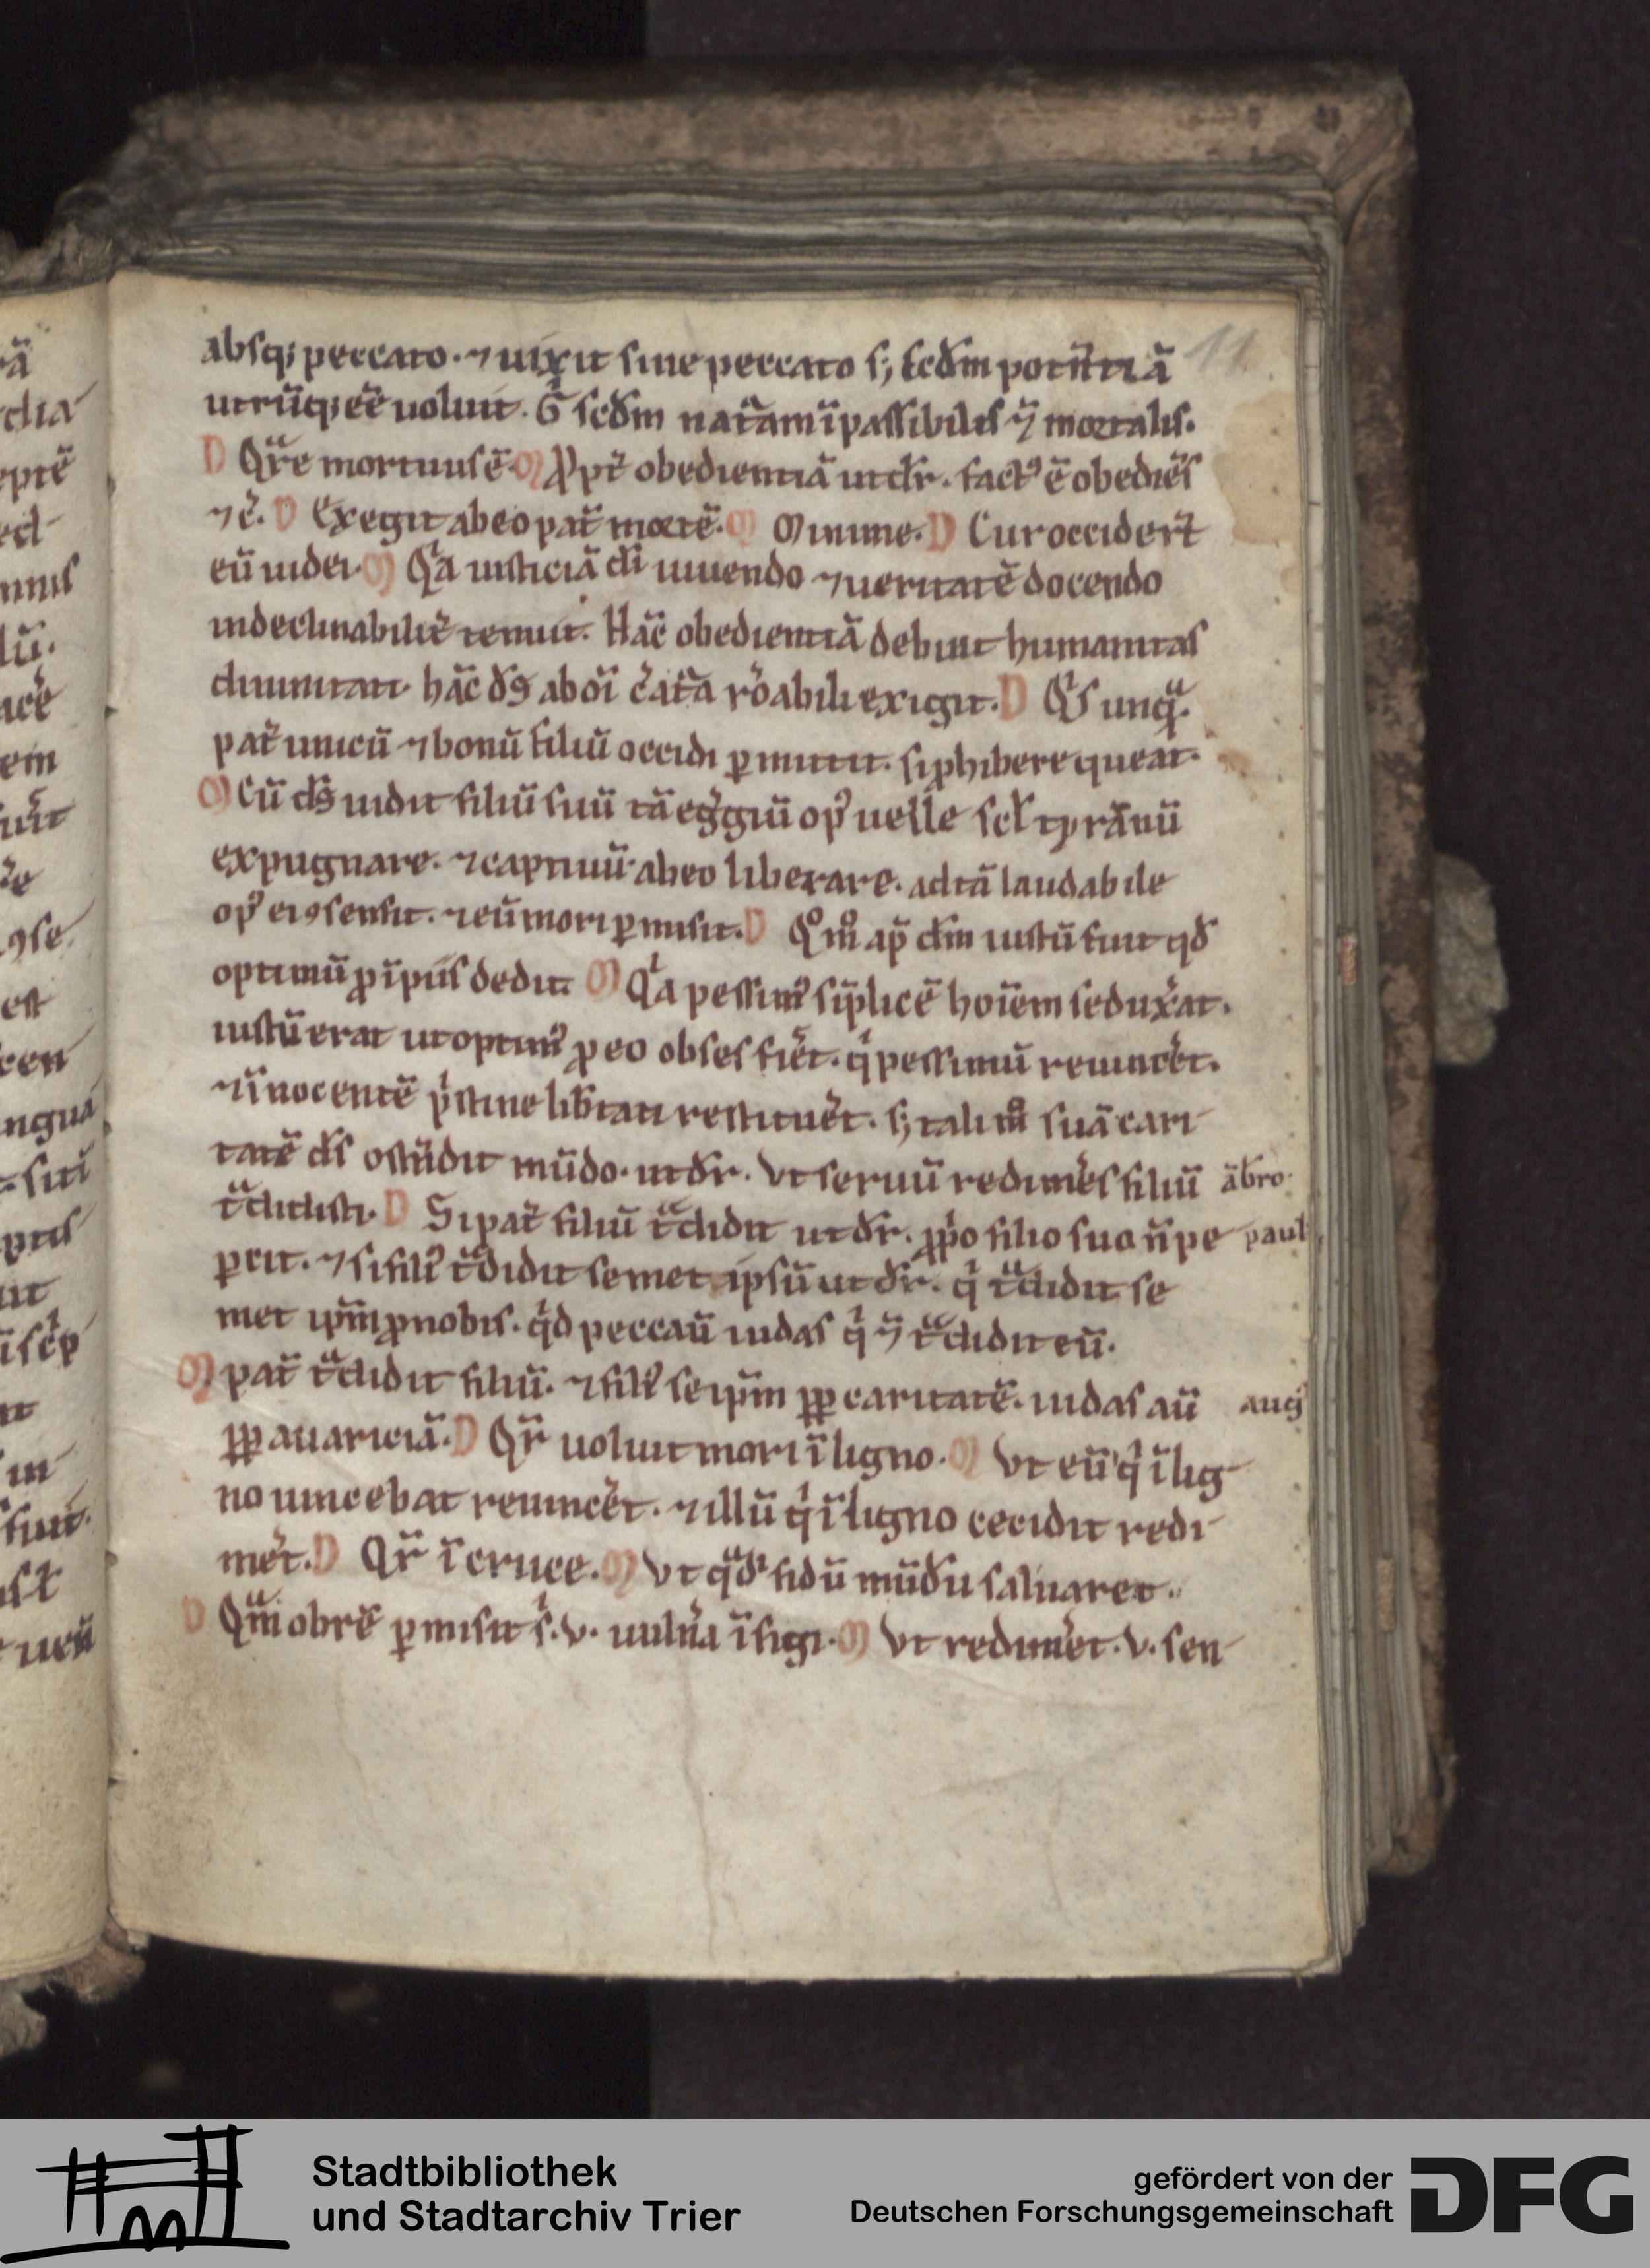 11
absq; peccato. ⁊ uixit sine peccato s; scđm potētiā
utrūq; eē uoluit. G̊ scđm natãm īpassibilis ⁊̄ mortalis.
D Qͣre mortuus ē. M Ꝓpt̃ obedientiā ut dr̃. factꝰ ē obediēs
⁊c̄. D Exegit ab eo pat̃ mortē. M Minime. D Cur occider̃t
eū iudei. M Qͥa iusticiā dī uiuendo ⁊ ueritatē docendo
indeclinabilit̃ tenuit. Hāc obedientiā debuit humanitas
diuinitati. hāc đs ab oī c̃at̃a rōabili exigit. D Qͥs unqͣ.
pat̃ unicū ⁊ bonū filiū occidi ꝑmittit. si ꝓhibere queat.
M Cū ds̄ uidit filiū suū tā eg̃giū opꝰ uelle scl̃ tyrānū
expugnare. ⁊ captiuū ab eo liberare. ad tā laudabile
opꝰ ei ꝯsensit. ⁊ eū mori ꝑmisit. D Qͦmͦ ap̄ dm̄ iustū fuit qđ
optimū ꝓ īpiis dedit. M Qͥa pessimꝰ sīplicē hoīem seduxãt.
iustū erat ut optimꝰ ꝓ eo obses fiẽt. qͥ pessimū reuincẽt.
⁊ īnocentē pͥstine lib̃tati restituẽt. s; tali mͦ suā cari
tatē ds̄ ostēdit mūdo. ut dr̃. Vt seruū redimẽs filiū
ābro.
tͣdidisti. D Si pat̃ filiū tͣdidit ut dr̃. ꝓp̄o filio suo ñ pe
paul
ꝑcit. ⁊ si filiꝰ tͣdidit semet ipsū ut dr̃. qͥ tͣdidit se
met ip̄m ꝓ nobis. qͥd peccauͭ iudas qͥ ⁊̄ tͣdidit eū.
M pat̃ tͣdidit filiū. ⁊ filiꝰ se ip̄m ꝓꝑ caritatē. iudas aū
aug̃
ꝓꝑ auariciā. D Qͣr̃ uoluit mori ī ligno. M Vt eū qͥ ī lig
no uincebat reuincẽt. ⁊ illū qͥ ī ligno cecidit redi
mẽt. D Qͣr̃ ī cruce. M Vt qͣdͥfidū mūdū saluaret.
D Qͣm ob rē ꝑmisit sͥ .v. uuln̄a īfigi. M Vt redimẽt .v. sen
Stadtbibliothek
und Stadtarchiv Trier
gefördert von der
Deutschen Forschungsgemeinschaft
DFG